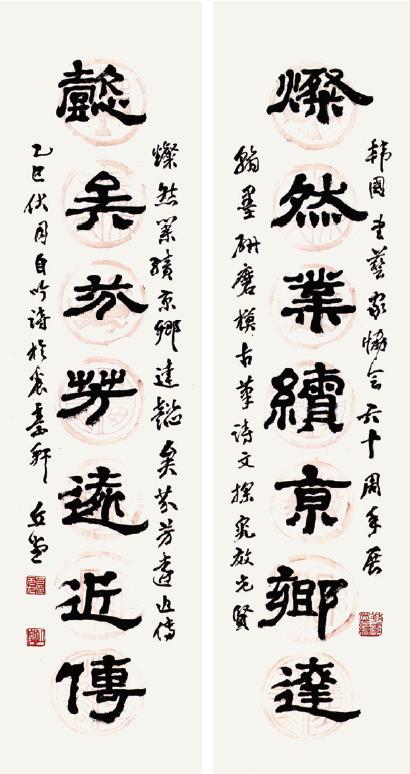 韓國書藝家協會六十周年展
燦然業績京鄉達
翰墨硏磨模古筆詩文探究效先賢
燦然業績京鄉達懿矣芬芳遠近傳
懿矣芬芳遠近傳
乙巳伏月自吟詩於軒 丘堂